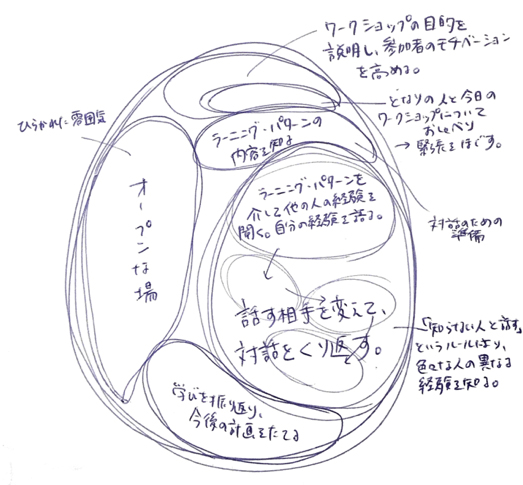 ワークショップの目的を
説明し、参加者のモチベーション
を高める。
となりの人と今日の
ワークショップについて
おしゃべり
→ 緊張をほぐす。
ひらかれた雰囲気
ラーニング・パターンの
内容を知る
オープンな場
ラーニング・パターンを
介して他の人の経験を
聞く。自分の経験を話る。
対話のための
準備
話す相手を変えて、
対話をくり返す。
「知らない人と話す」
というルールにより、
色々な人の異なる
経験を知る。
学びを振り返り、
今後の計画をたてる